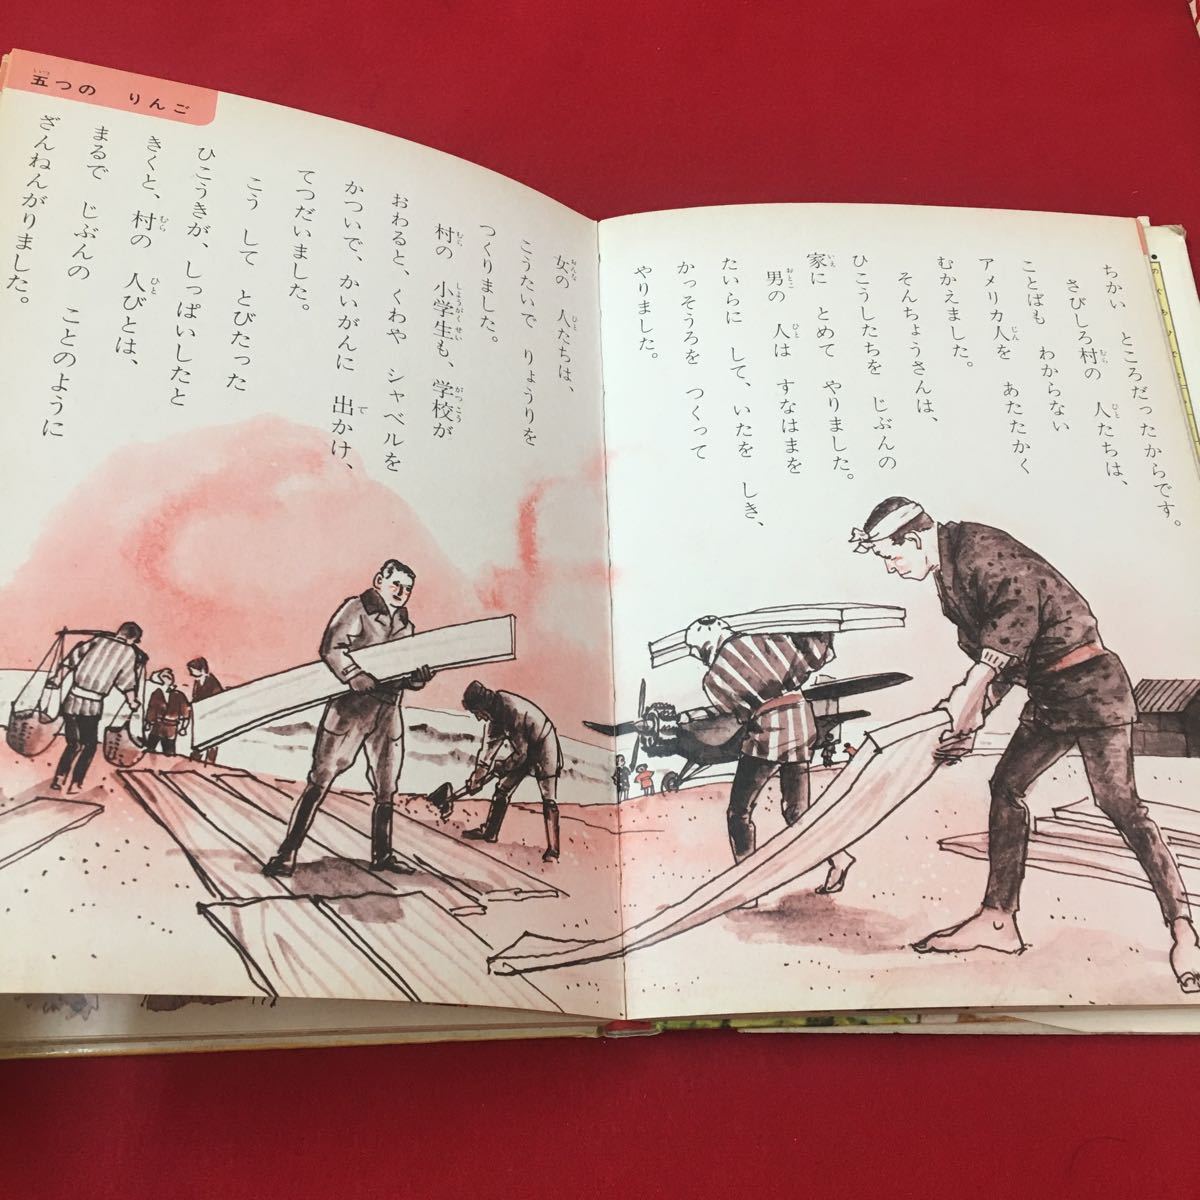 ちかい ところだったからです。
さびしろ村の 人たちは、
ことばも わからない
アメリカ人を あたたかく
むかえました。
そんちょうさんは、
ひこうしたちを じぶんの
家に とめて やりました。
男の 人は すなはまを
たいらに して、いたを しき、
かっそうろを つくって
やりました。
五つの りんご
女の 人たちは、
こうたいで りょうりを
つくりました。
村の 小学生も、学校が
おわると、くわや シャベルを
かついで、かいがんに 出かけ、
てつだいました。
こう して とびたった
ひこうきが、しっぱいしたと
きくと、村の 人びとは、
まるで じぶんの ことのように
ざんねんがりました。